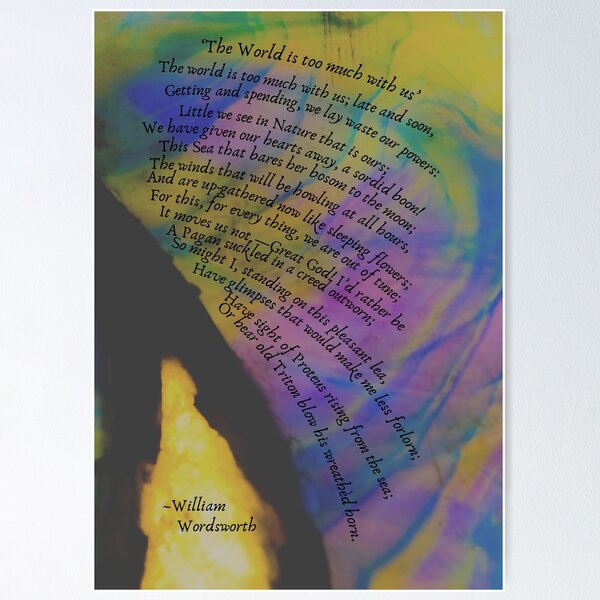 ‘The World is too much with us’
The world is too much with us; late and soon,
Getting and spending, we lay waste our powers:
Little we see in Nature that is ours;
We have given our hearts away, a sordid boon!
This Sea that bares her bosom to the moon;
The winds that will be howling at all hours,
And are up-gathered now like sleeping flowers;
For this, for every thing, we are out of tune;
It moves us not—Great God! I'd rather be
A Pagan suckled in a creed outworn;
So might I, standing on this pleasant lea,
Have glimpses that would make me less forlorn;
Have sight of Proteus rising from the sea;
Or hear old Triton blow his wreathèd horn.
~William
Wordsworth